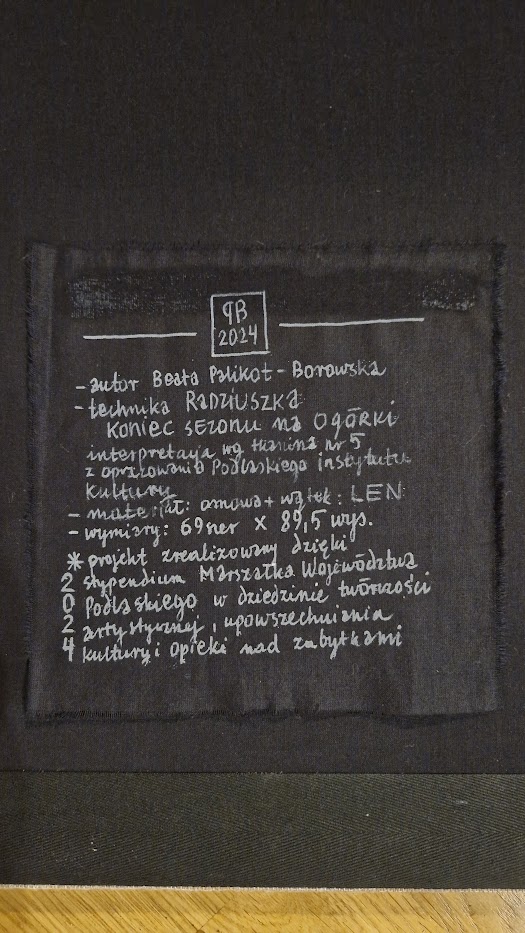 PB
2024
- autor Beata Palikot-Borowska
- technika RADZIUSZKA
KONIEC SEZONU NA OGÓRKI
interpretacja wg tkanina nr 5
z opracowania Podlaskiego instytutu
kultury
- materiał: osnowa + wątek: LEN
- wymiary: 69 szer X 89,5 wys.
* projekt zrealizowany dzięki
2 stypendium Marszałka Województwa
0 Podlaskiego w dziedzinie twórczości
2 artystycznej, upowszechniania
4 kultury i opieki nad zabytkami